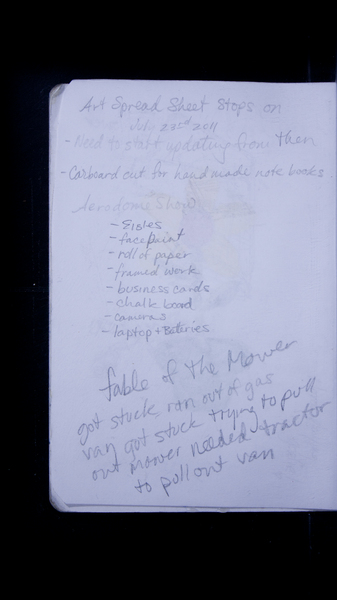 Art Spread Sheet Stops on
July 23rd 2011
- Need to start updating from then
- Carboard cut for hand made note books.
Aerodome Show
- Eisles
- facepaint
- roll of paper
- framed work
- business cards
- chalk board
- cameras
- laptop + Bateries
fable of the Mower
got stuck ran out of gas
van got stuck trying to pull
out mower needed tractor
to pull out van